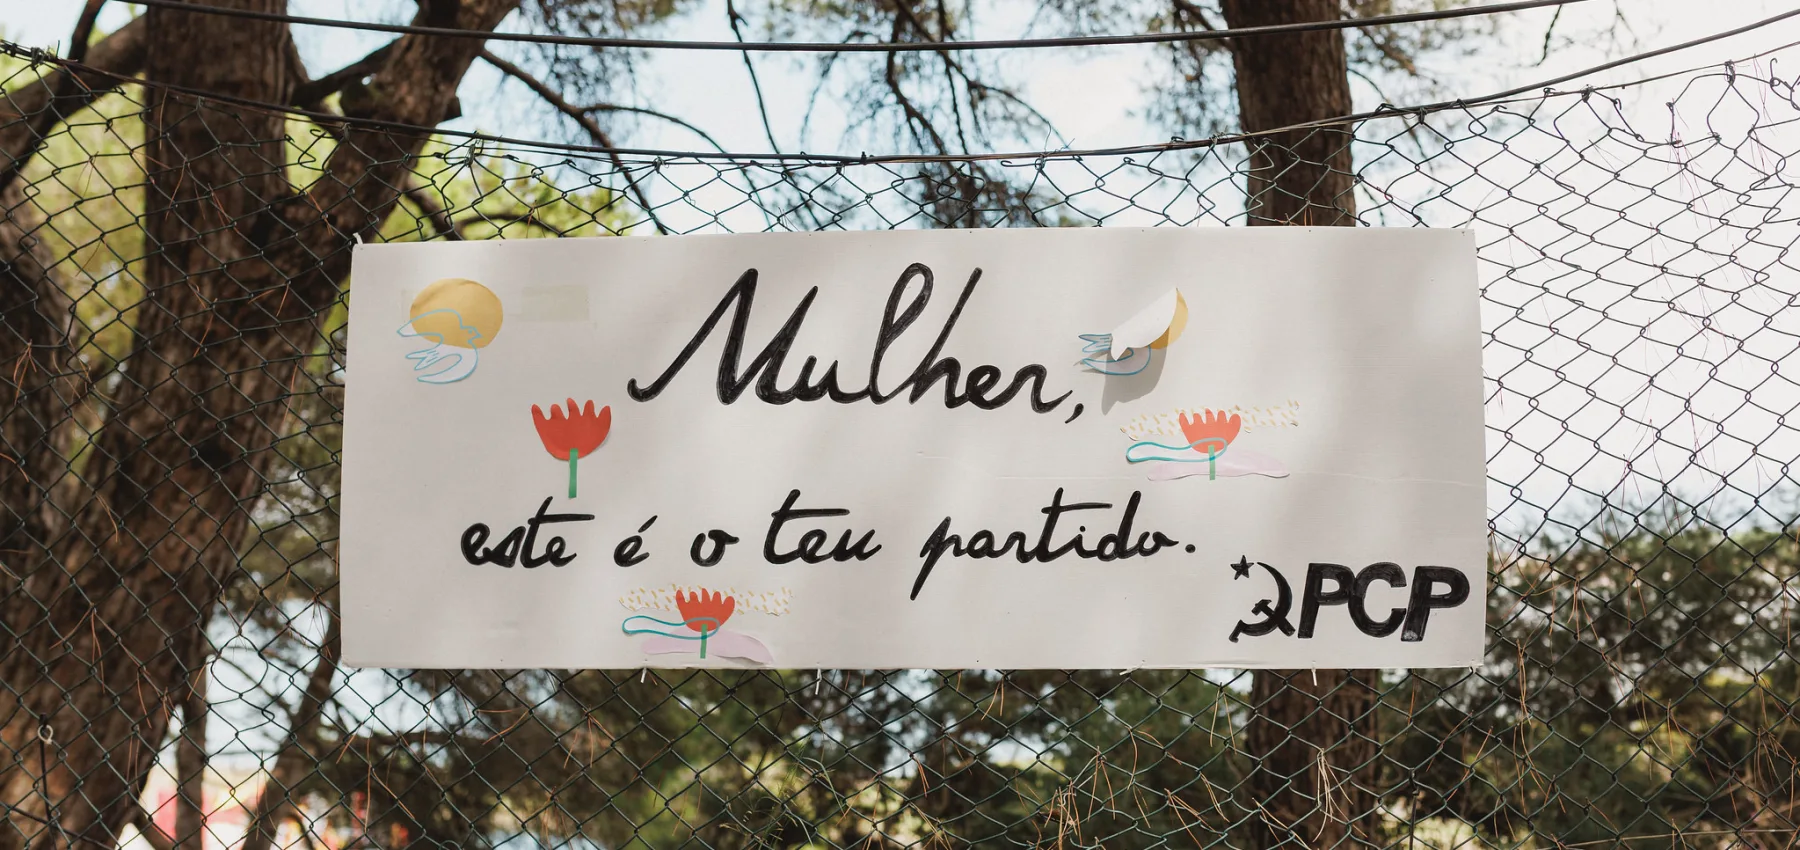 Mulher,
este é o teu partido.
PCP